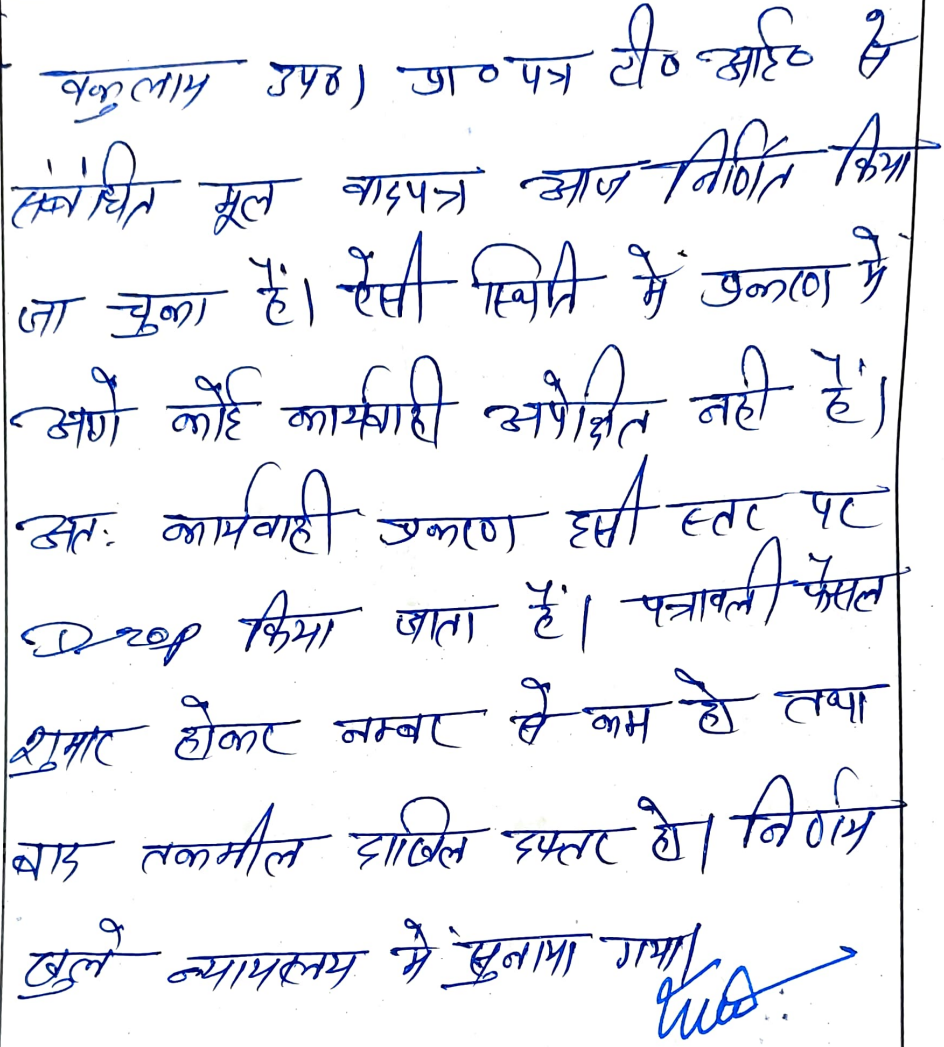 वकुलाय उप०। प्रा० पत्र टी० आई० से
संबंधित मूल वादपत्र आज निर्णित किया
जा चुका है। ऐसी स्थिति में प्रकरण में
आगे कोई कार्यवाही अपेक्षित नही है।
अत: कार्यवाही प्रकरण इसी स्तर पर
Drop किया जाता है। पत्रावली फैसल
शुमार होकर नम्बर से कम हो तथा
बाद तकमील दाखिल दफ्तर हो। निर्णय
खुले न्यायालय में सुनाया गया।